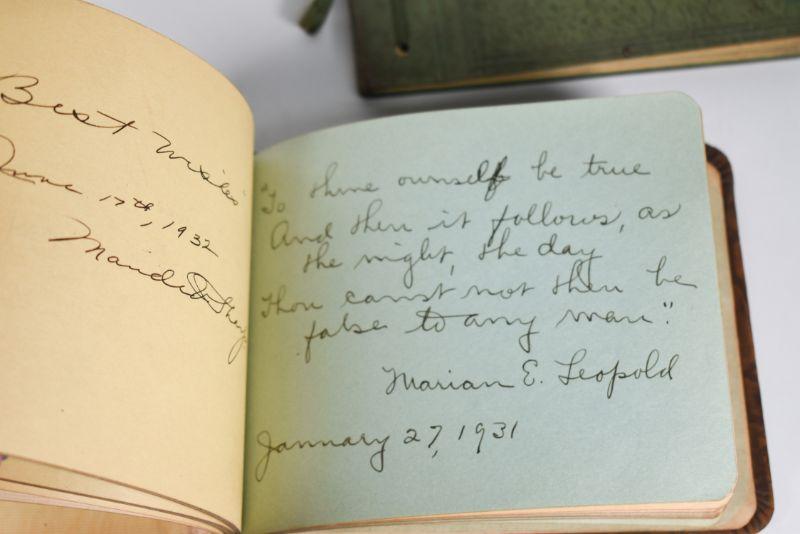 Best Wishes
June 17th, 1932
"To thine ownself be true
And then it follows, as
the night, the day
Thou canst not then be
false to any man".
Marian E. Leopold
January 27, 1931